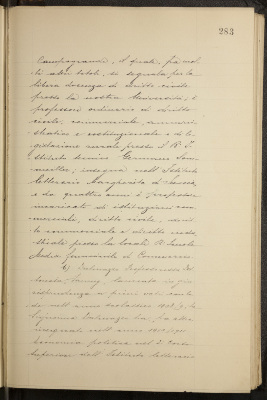 283
Campogrande, il quale, fra mol-
ti altri titoli, si segnala per la
libera docenza di diritto civile
presso la nostra Università; è
professore ordinario di diritto
civile, commerciale, ammini-
strativo e costituzionale e di le-
gislazione rurale presso il R. I-
stituto tecnico Germano Som-
meiller; insegna nell'Istituto
letterario Margherita di Savoia,
e da quattro anni è
incaricato di istituzioni com-
merciali, diritto civile, dirit-
to commerciale e diritto indu-
striale presso la locale R. Scuola
Media femminile di Commercio.
laureato in giu-
risprudenza a pieni voti
nell'anno scolastico
la
Signorina ha
insegnato nell'anno
economia politica nel 2° Corso
Superiore dell'Istituto letterario